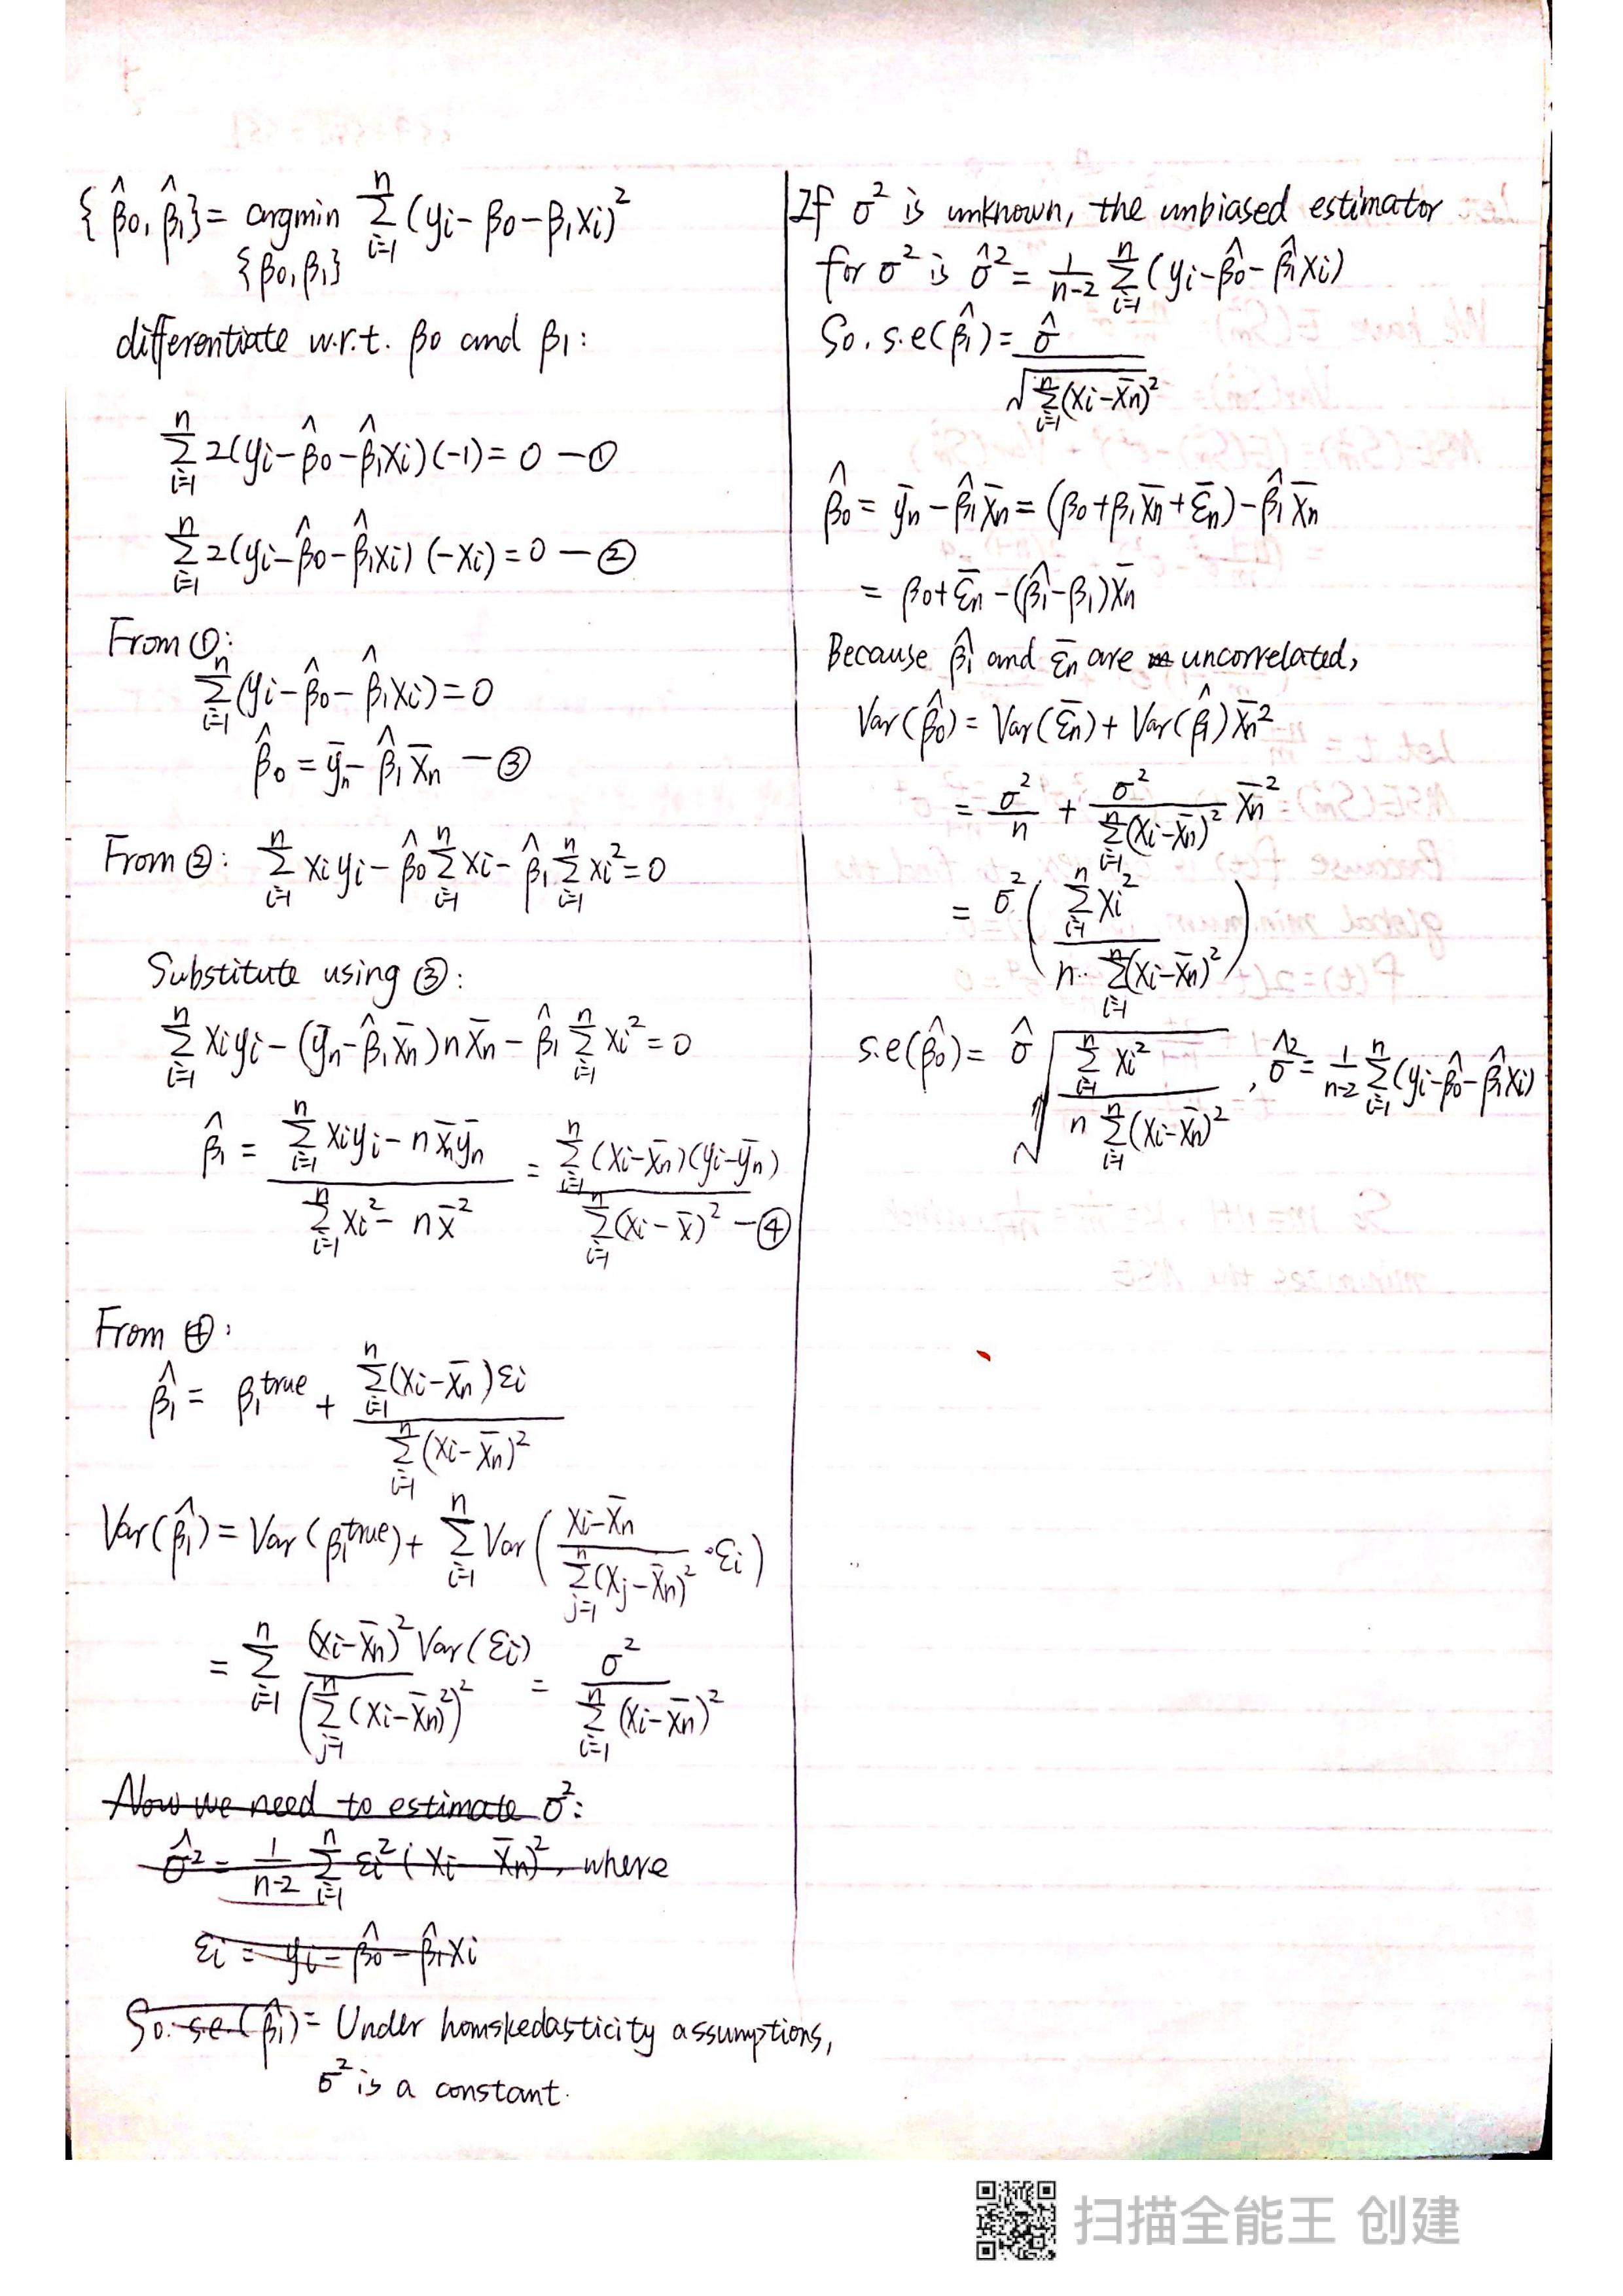 {β̂0, β̂1} = argmin_{β0, β1} Σ_{i=1}^{n} (yi − β0 − β1xi)²
differentiate w.r.t. β0 and β1:
Σ_{i=1}^{n} 2(yi − β̂0 − β̂1xi)(−1) = 0 — ①
Σ_{i=1}^{n} 2(yi − β̂0 − β̂1xi)(−xi) = 0 — ②
From ①:
Σ_{i=1}^{n} (yi − β̂0 − β̂1xi) = 0
β̂0 = ȳn − β̂1x̄n — ③
From ②: Σ_{i=1}^{n} xiyi − β̂0 Σ_{i=1}^{n} xi − β̂1 Σ_{i=1}^{n} xi² = 0
Substitute using ③:
Σ_{i=1}^{n} xiyi − (ȳn − β̂1x̄n) n x̄n − β̂1 Σ_{i=1}^{n} xi² = 0
β̂1 = (Σ_{i=1}^{n} xiyi − n x̄nȳn) / (Σ_{i=1}^{n} xi² − n x̄²) = Σ_{i=1}^{n} (xi − x̄n)(yi − ȳn) / Σ_{i=1}^{n} (xi − x̄)² — ④
From ④:
β̂1 = β1^true + Σ_{i=1}^{n} (xi − x̄n)εi / Σ_{i=1}^{n} (xi − x̄n)²
Var(β̂1) = Var(β1^true) + Σ_{i=1}^{n} Var( (xi − x̄n) / Σ_{j=1}^{n} (xj − x̄n)² · εi )
= Σ_{i=1}^{n} (xi − x̄n)² Var(εi) / (Σ_{j=1}^{n} (xi − x̄n)²)² = σ² / Σ_{i=1}^{n} (xi − x̄n)²
Now we need to estimate σ²:
σ̂² = 1/(n−2) Σ_{i=1}^{n} εi² (xi − x̄n)², where
εi = yi − β̂0 − β̂1xi
So. s.e.(β̂1) = Under homskedasticity assumptions,
σ² is a constant.
If σ² is unknown, the unbiased estimator
for σ² is σ̂² = 1/(n−2) Σ_{i=1}^{n} (yi − β̂0 − β̂1xi)
So. s.e(β̂1) = σ̂ / √(Σ_{i=1}^{n} (xi − x̄n)²)
β̂0 = ȳn − β̂1x̄n = (β0 + β1x̄n + ε̄n) − β̂1x̄n
= β0 + ε̄n − (β̂1 − β1)x̄n
Because β̂1 and ε̄n are uncorrelated,
Var(β̂0) = Var(ε̄n) + Var(β̂1) x̄n²
= σ²/n + σ² / Σ_{i=1}^{n} (xi − x̄n)² x̄n²
= σ² ( Σ_{i=1}^{n} xi² / n·Σ_{i=1}^{n} (xi − x̄n)² )
s.e(β̂0) = σ̂ √( Σ_{i=1}^{n} xi² / n Σ_{i=1}^{n} (xi − x̄n)² ), σ̂² = 1/(n−2) Σ_{i=1}^{n} (yi − β̂0 − β̂1xi)
扫描全能王 创建